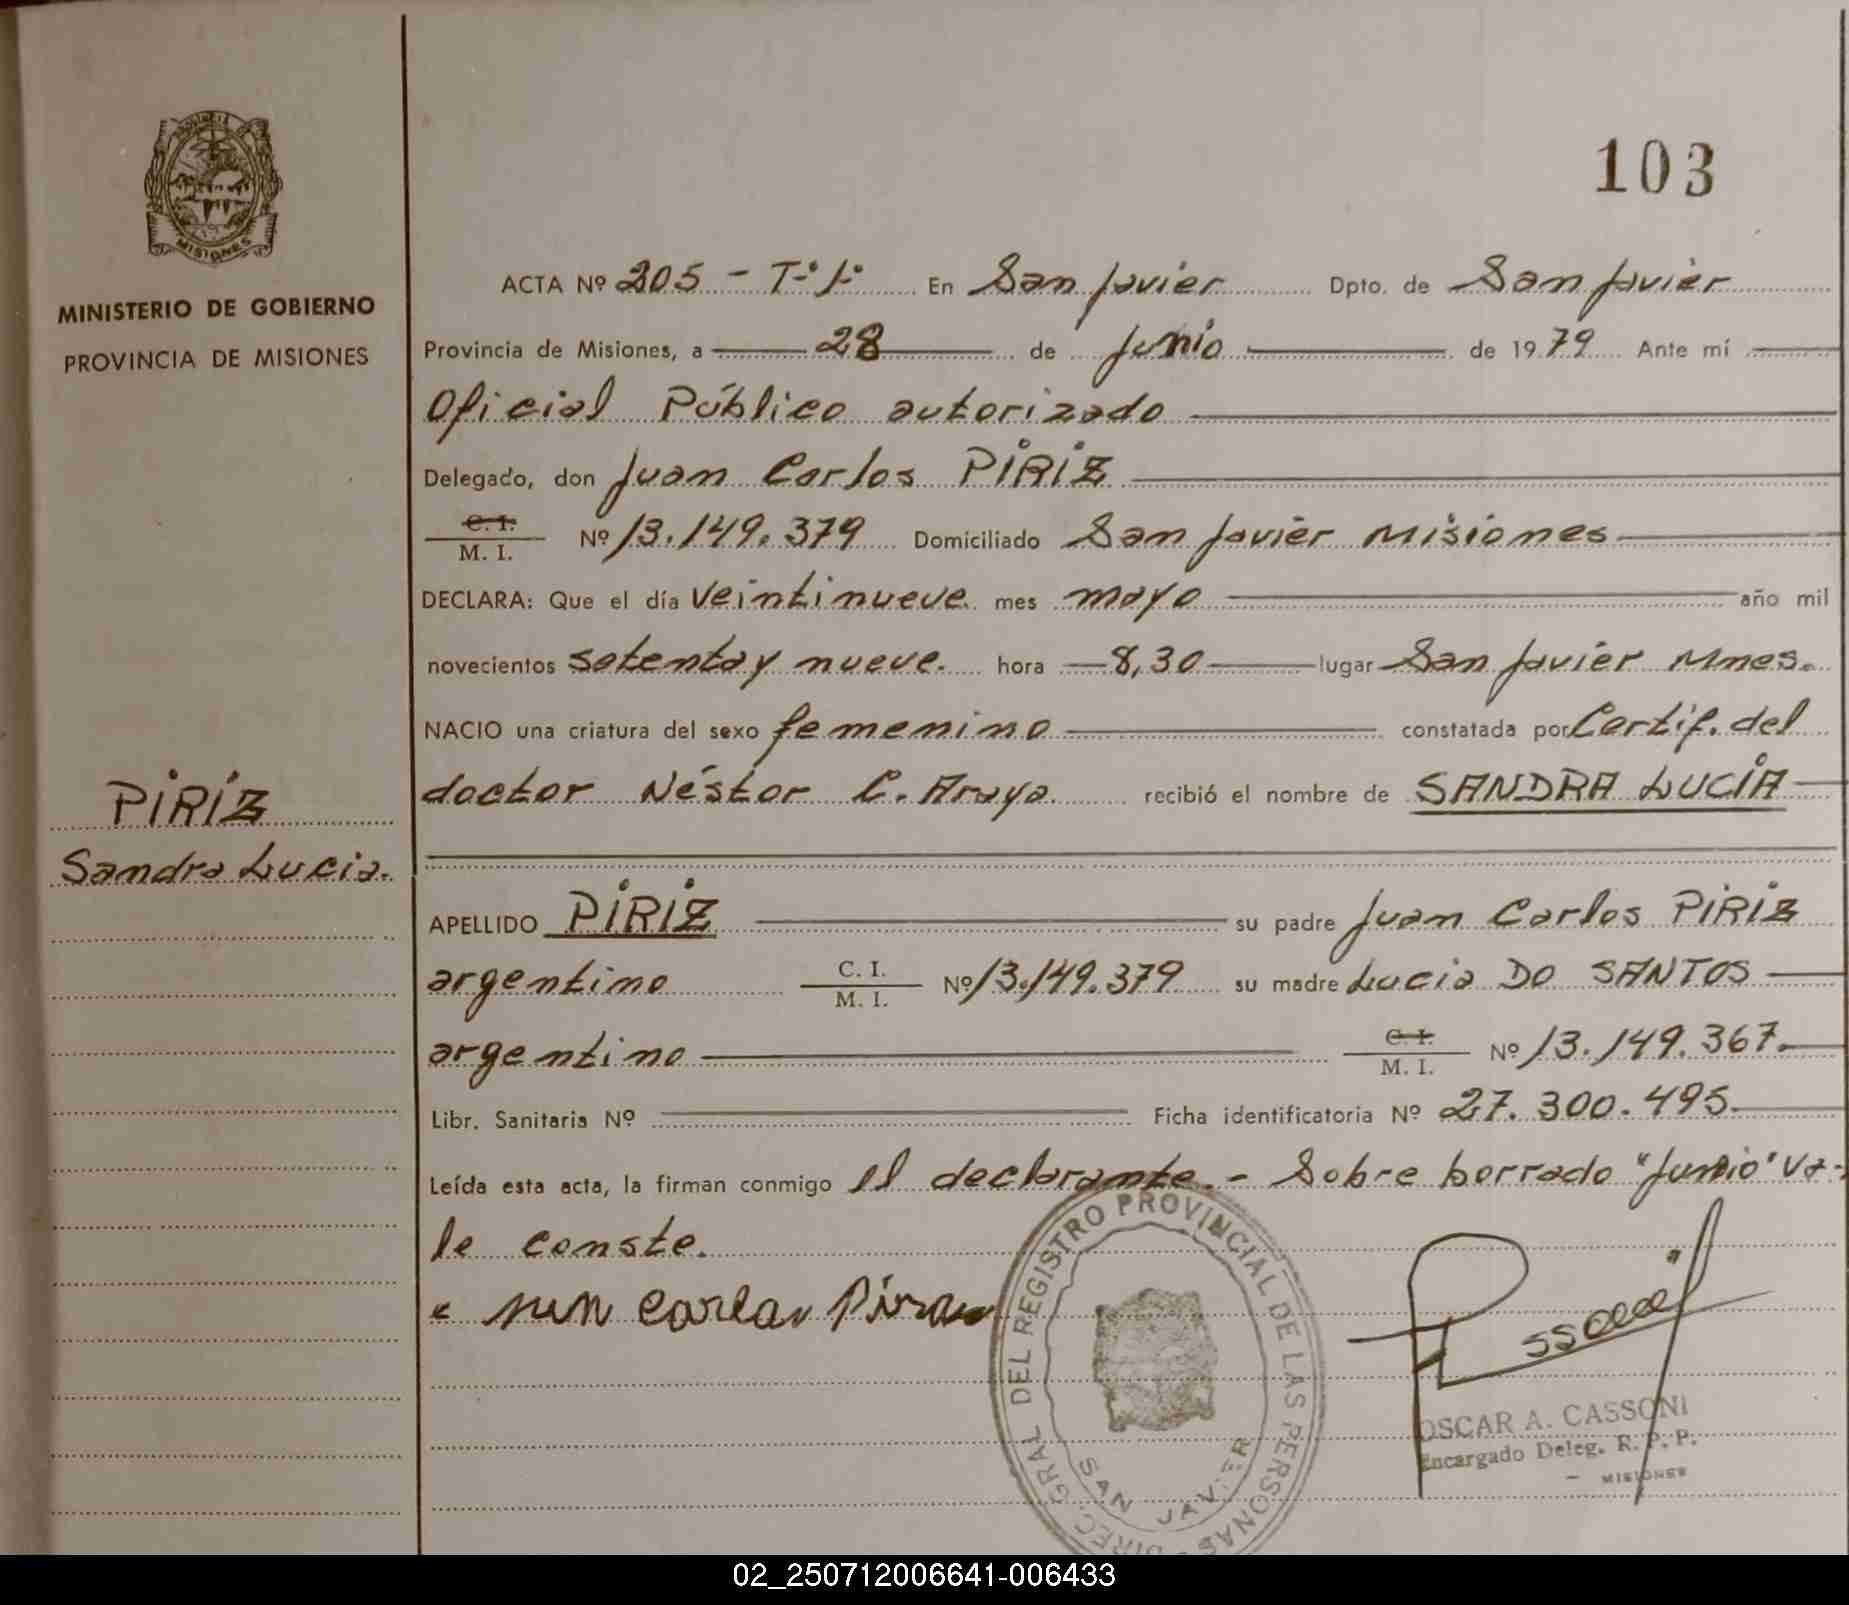 103
PROVINCIA DE
MISIONES
MINISTERIO DE GOBIERNO
PROVINCIA DE MISIONES
PIRIZ
Sandra Lucia.
ACTA Nº 205 - Tº 1º En San Javier Dpto. de San Javier
Provincia de Misiones, a 28 de Junio de 1979 Ante mí
Oficial Público autorizado
Delegado, don Juan Carlos PIRIZ
C. I. / M. I. Nº 13.149.379 Domiciliado San Javier Misiones
DECLARA: Que el día veintinueve mes mayo año mil
novecientos setenta y nueve. hora 8,30 lugar San Javier Mnes.
NACIO una criatura del sexo femenino constatada por Certif. del
doctor Néstor C. Araya recibió el nombre de SANDRA LUCIA
APELLIDO PIRIZ su padre Juan Carlos PIRIZ
argentino C. I. / M. I. Nº 13.149.379 su madre Lucia DO SANTOS
argentino C. I. / M. I. Nº 13.149.367.
Libr. Sanitaria Nº Ficha identificatoria Nº 27.300.495
Leída esta acta, la firman conmigo el declarante. - Sobre borrado "Junio" va-
le conste.
DIREC. GRAL DEL REGISTRO PROVINCIAL DE LAS PERSONAS
SAN JAVIER
OSCAR A. CASSONI
Encargado Deleg. R. P. P.
- MISIONES
02_250712006641-006433